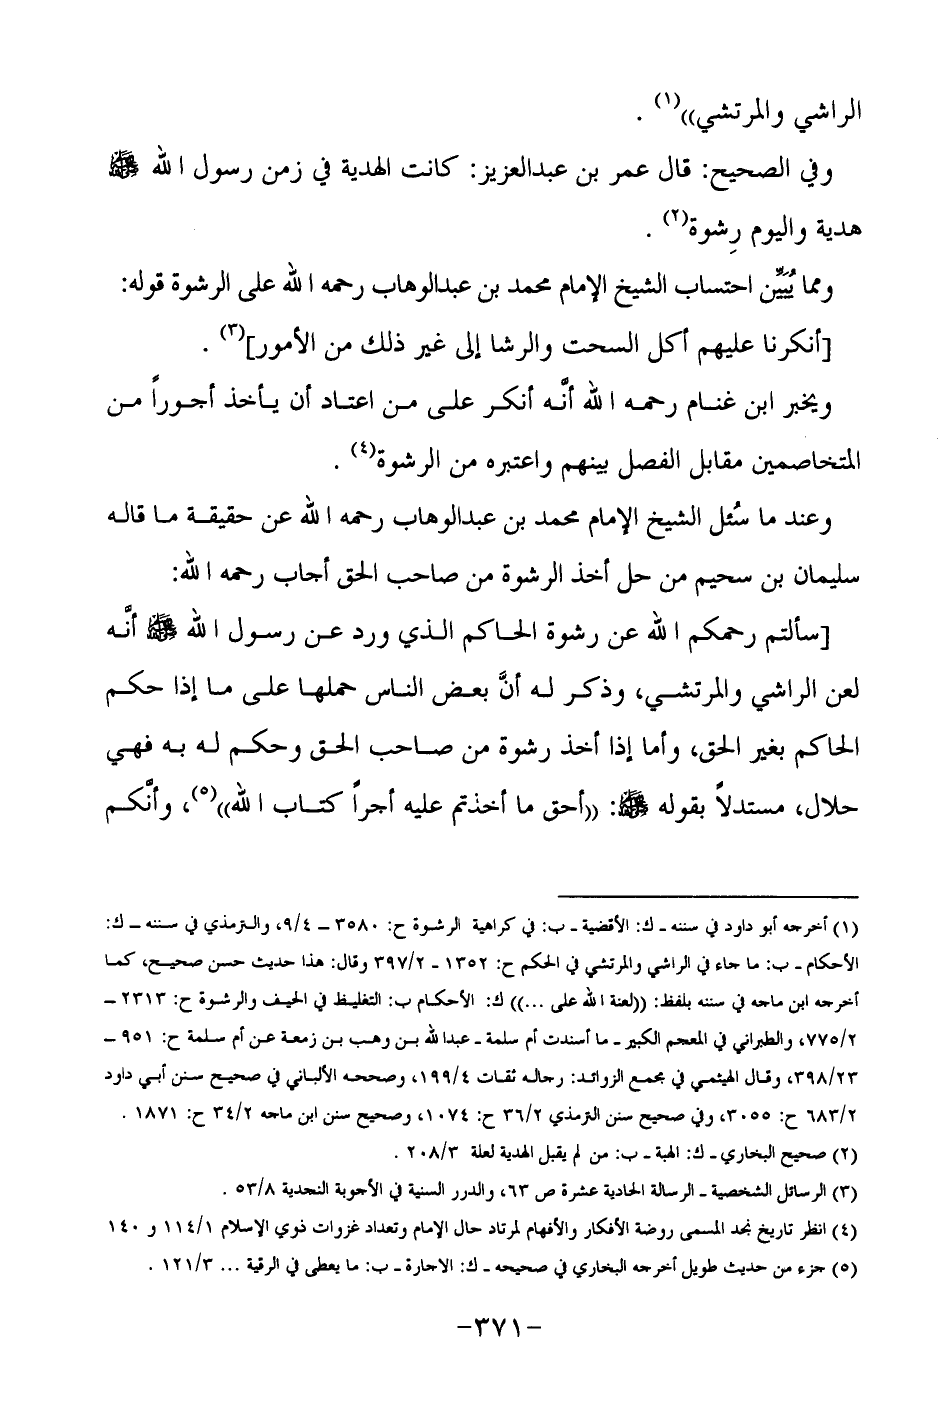 الراشي والمرتشي))(١) .
وفي الصحيح: قال عمر بن عبدالعزيز: كانت الهدية في زمن رسول الله ﷺ
هدية واليوم رِشوة(٢) .
ومما يُبيِّن احتساب الشيخ الإمام محمد بن عبدالوهاب رحمه الله على الرشوة قوله:
[أنكرنا عليهم أكل السحت والرشا إلى غير ذلك من الأمور](٣) .
ويخبر ابن غنام رحمه الله أنَّه أنكر على من اعتاد أن يأخذ أجوراً من
المتخاصمين مقابل الفصل بينهم واعتبره من الرشوة(٤) .
وعند ما سُئل الشيخ الإمام محمد بن عبدالوهاب رحمه الله عن حقيقة ما قاله
سليمان بن سحيم من حل أخذ الرشوة من صاحب الحق أجاب رحمه الله:
[سألتم رحمكم الله عن رشوة الحاكم الذي ورد عن رسول الله ﷺ أنَّه
لعن الراشي والمرتشي، وذكر له أنَّ بعض الناس حملها على ما إذا حكم
الحاكم بغير الحق، وأما إذا أخذ رشوة من صاحب الحق وحكم له به فهي
حلال، مستدلاً بقوله ﷺ: ((أحق ما أخذتم عليه أجراً كتاب الله))(٥)، وأنَّكم
(١) أخرجه أبو داود في سننه ـ ك: الأقضية ـ ب: في كراهية الرشوة ح: ٣٥٨٠ ـ ٩/٤، والترمذي في سننه ـ ك:
الأحكام ـ ب: ما جاء في الراشي والمرتشي في الحكم ح: ١٣٥٢ ـ ٣٩٧/٢ وقال: هذا حديث حسن صحيح، كما
أخرجه ابن ماجه في سننه بلفظ: ((لعنة الله على ...)) ك: الأحكام ب: التغليظ في الحيف والرشوة ح: ٢٣١٣ ـ
٧٧٥/٢، والطبراني في المعجم الكبير ـ ما أسندت أم سلمة ـ عبدالله بن وهب بن زمعة عن أم سلمة ح: ٩٥١ ـ
٣٩٨/٢٣، وقال الهيثمي في مجمع الزوائد: رجاله ثقات ١٩٩/٤، وصححه الألباني في صحيح سنن أبي داود
٦٨٣/٢ ح: ٣٠٥٥، وفي صحيح سنن الترمذي ٣٦/٢ ح: ١٠٧٤، وصحيح سنن ابن ماجه ٣٤/٢ ح: ١٨٧١ .
(٢) صحيح البخاري ـ ك: الهبة ـ ب: من لم يقبل الهدية لعلة ٢٠٨/٣ .
(٣) الرسائل الشخصية ـ الرسالة الحادية عشرة ص ٦٣، والدرر السنية في الأجوبة النجدية ٥٣/٨ .
(٤) انظر تاريخ نجد المسمى روضة الأفكار والأفهام لمرتاد حال الإمام وتعداد غزوات ذوي الإسلام ١١٤/١ و ١٤٠
(٥) جزء من حديث طويل أخرجه البخاري في صحيحه ـ ك: الاجارة ـ ب: ما يعطى في الرقية ... ١٢١/٣ .
-٣٧١-